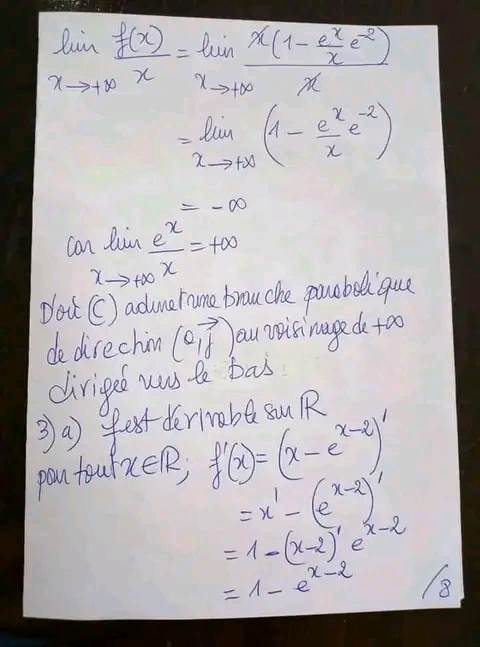 lim f(x)/x = lim x(1 - e^x/x e^-2)/x
x→+∞ x→+∞
= lim (1 - e^x/x e^-2)
x→+∞
= -∞
car lim e^x/x = +∞
x→+∞
D'où (C) admet une branche parabolique
de direction (o,j⃗) au voisinage de +∞
dirigée vers le bas
3) a) f est dérivable sur ℝ
pour tout x∈ℝ; f'(x) = (x - e^(x-2))'
= x' - (e^(x-2))'
= 1 - (x-2)' e^(x-2)
= 1 - e^(x-2)
/8